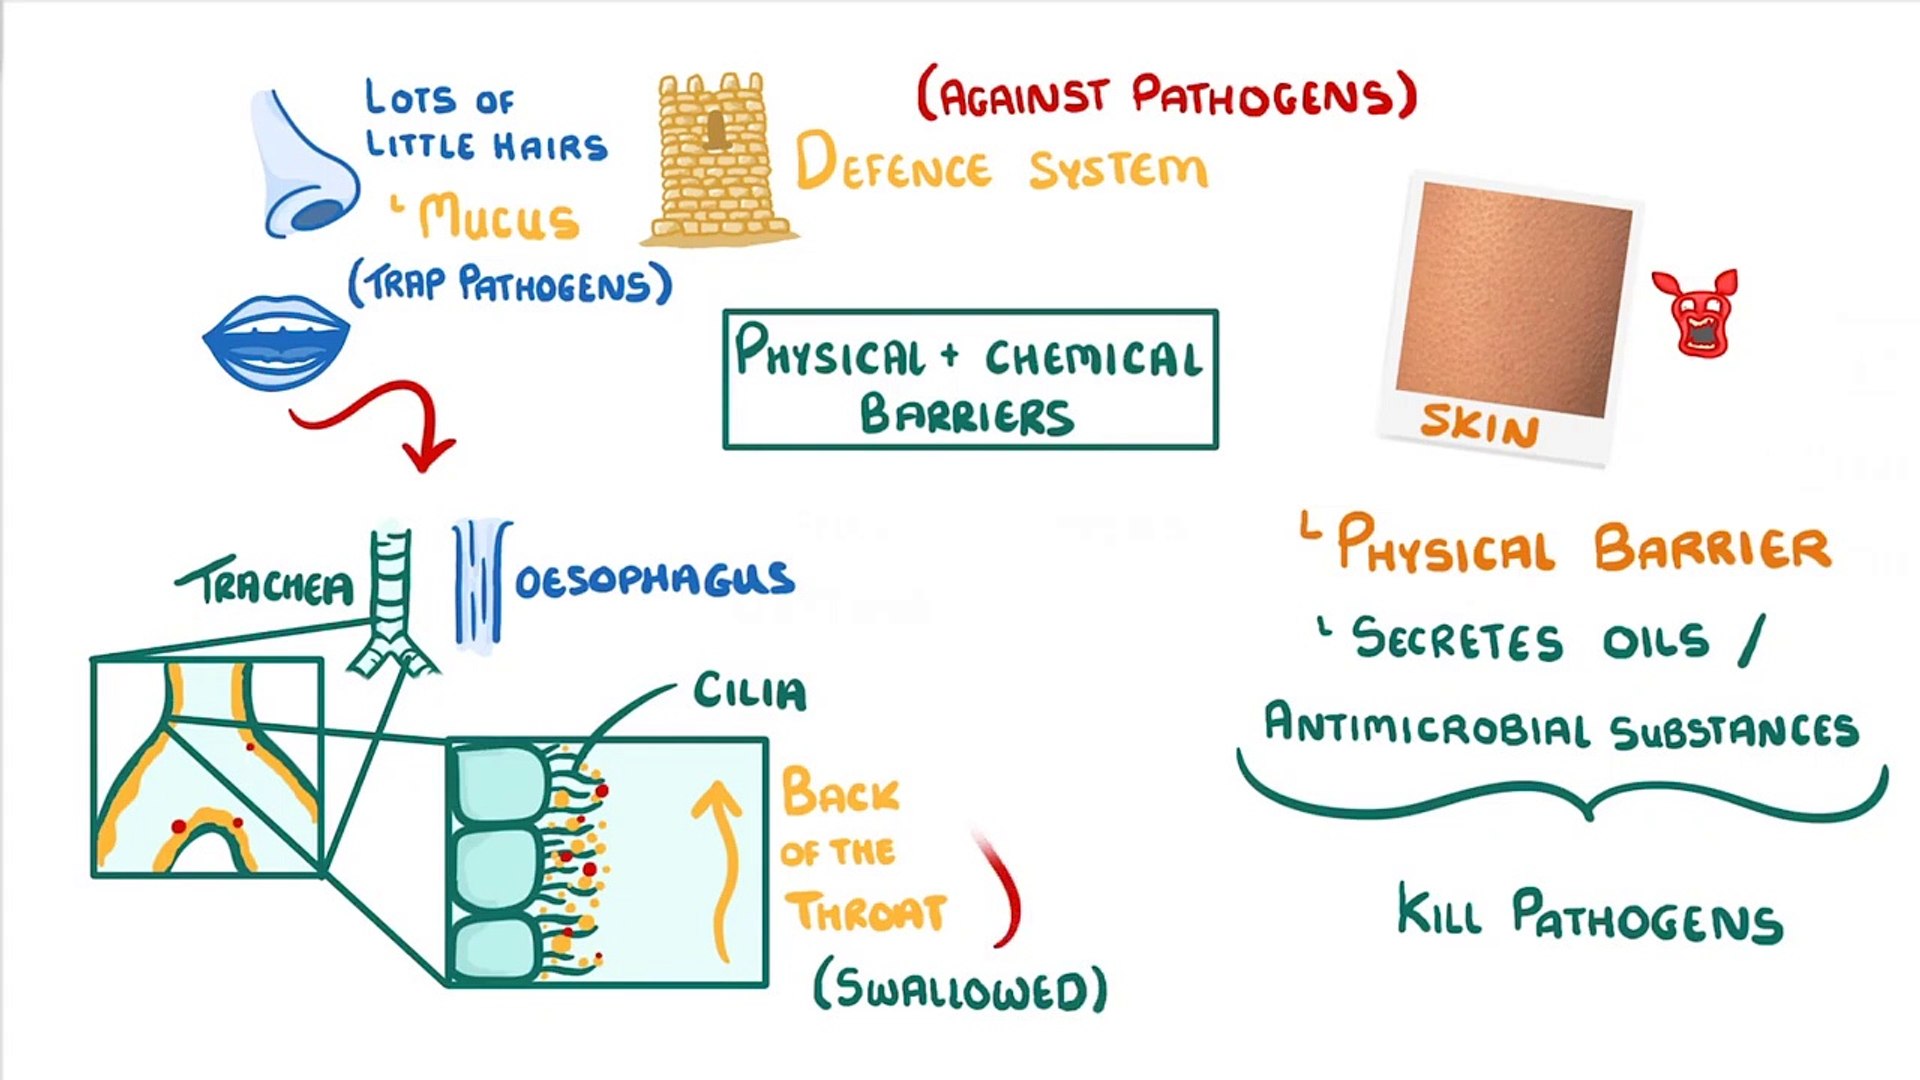 LOTS OF
LITTLE HAIRS
MUCUS
(TRAP PATHOGENS)
(AGAINST PATHOGENS)
DEFENCE SYSTEM
PHYSICAL + CHEMICAL
BARRIERS
SKIN
PHYSICAL BARRIER
SECRETES OILS /
ANTIMICROBIAL SUBSTANCES
KILL PATHOGENS
TRACHEA
OESOPHAGUS
CILIA
BACK
OF THE
THROAT
(SWALLOWED)